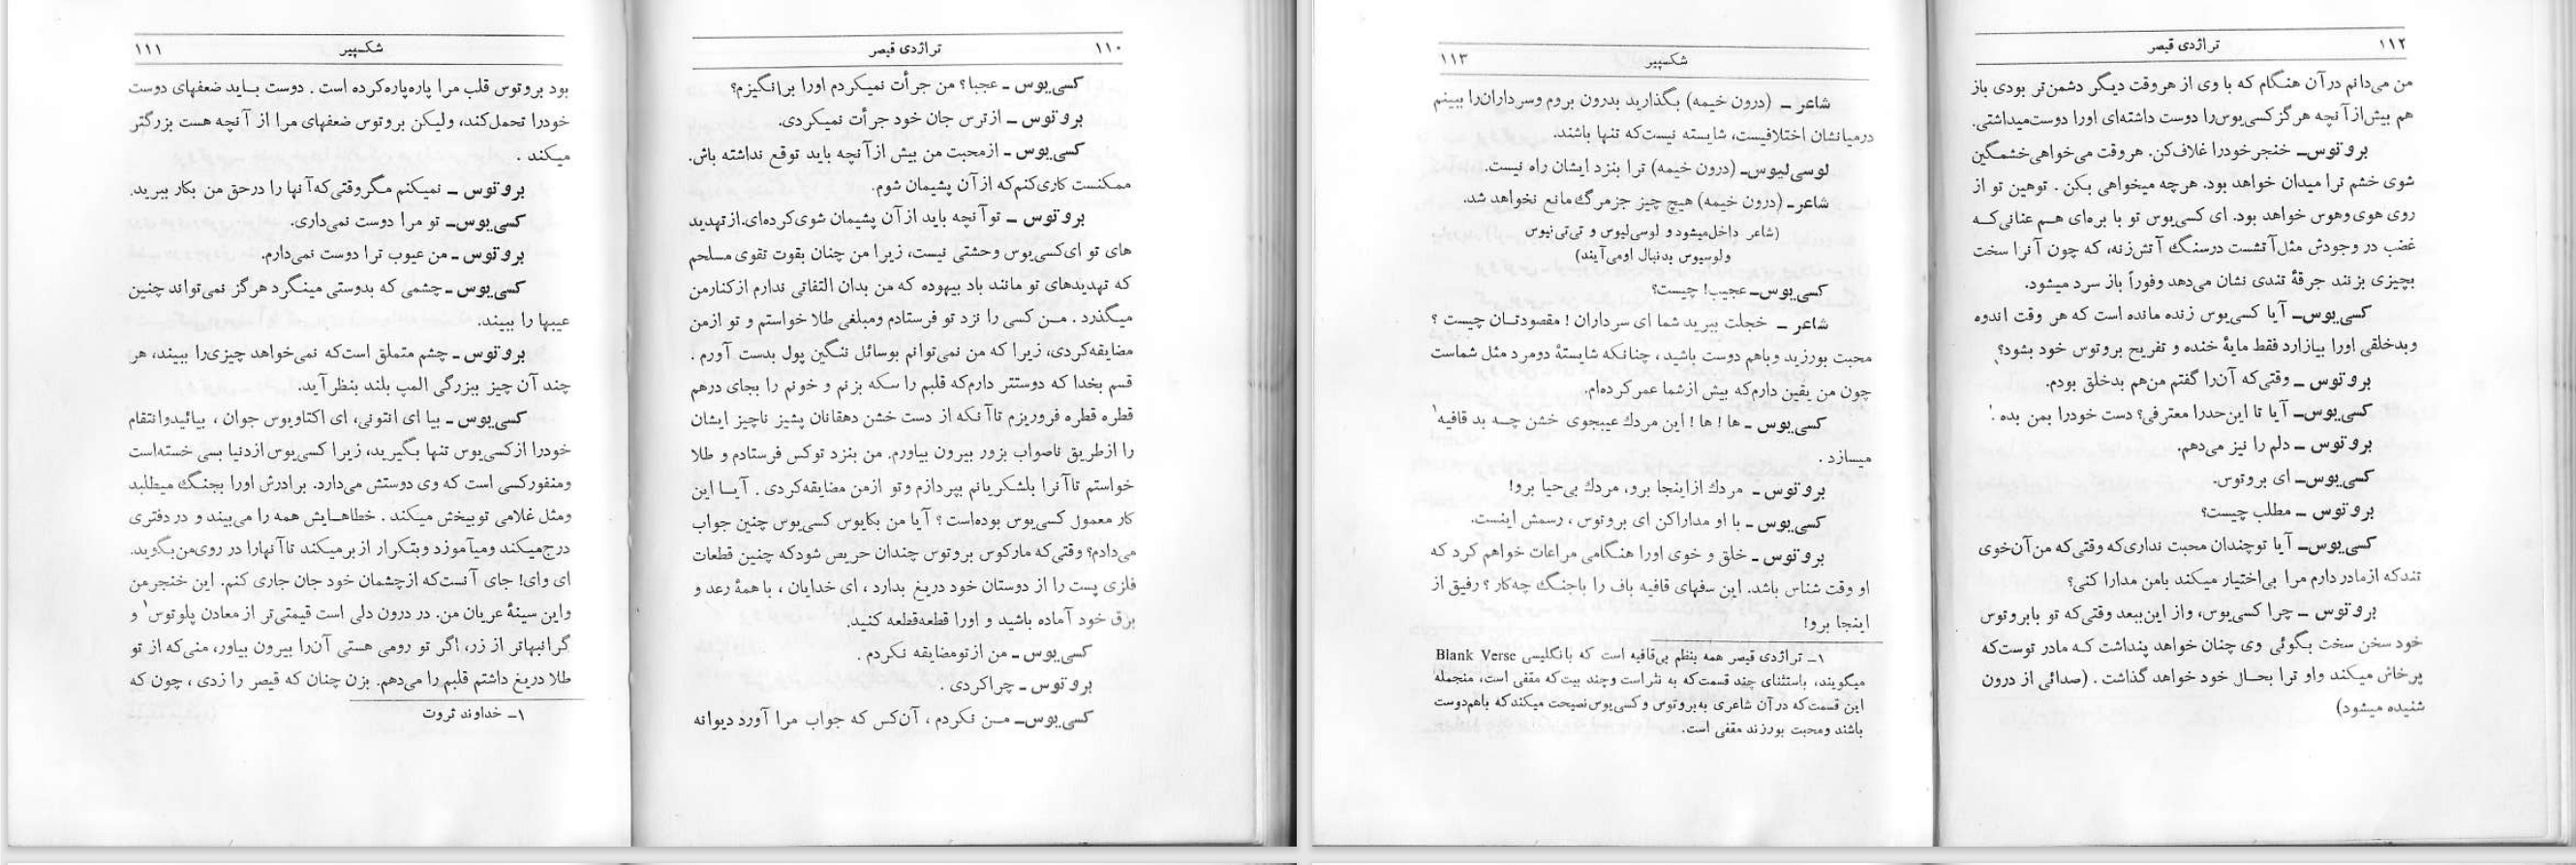 ۱۱۰
تراژدی قیصر
کسی‌یوس ـ عجبا؟ من جرأت نمیکردم اورا برانگیزم؟
بروتوس ـ ازترس جان خود جرأت نمیکردی.
کسی‌یوس ـ ازمحبت من بیش ازآنچه باید توقع نداشته باش.
ممکنست کاری‌کنم‌که ازآن پشیمان شوم.
بروتوس ـ توآنچه باید ازآن پشیمان شوی‌کرده‌ای.ازتهدید
های تو ای‌کسی‌یوس وحشتی نیست، زیرا من چنان بقوت تقوی مسلحم
که تهدیدهای تو مانند باد بیهوده که من بدان التفاتی ندارم ازکنارمن
میگذرد . مـن کسی را نزد تو فرستادم ومبلغی طلا خواستم و تو ازمن
مضایقه‌کردی، زیرا که من نمی‌توانم بوسائل ننگین پول بدست آورم .
قسم بخدا که دوستتر دارم‌که قلبم را سکه بزنم و خونم را بجای درهم
قطره قطره فروریزم تاآنکه از دست خشن دهقانان پشیز ناچیز ایشان
را ازطریق ناصواب بزور بیرون بیاورم. من بنزد توکس فرستادم و طلا
خواستم تاآنرا بلشکریانم بپردازم وتو ازمن مضایقه‌کردی . آیـا این
کار معمول کسی‌یوس بوده‌است ؟ آیا من بکایوس کسی‌یوس چنین جواب
می‌دادم؟ وقتی‌که مارکوس بروتوس چندان حریص شودکه چنین قطعات
فلزی پست را از دوستان خود دریغ بدارد ، ای خدایان ، با همهٔ رعد و
برق خود آماده باشید و اورا قطعه‌قطعه کنید.
کسی‌یوس ـ من ازتومضایقه نکردم .
بروتوس ـ چراکردی .
کسی‌یوس‌ـ مـن نکردم ، آن‌کس که جواب مرا آورد دیوانه
شکسپیر
۱۱۱
بود بروتوس قلب مرا پاره‌پاره‌کرده است . دوست بـاید ضعفهای دوست
خودرا تحمل‌کند، ولیکن بروتوس ضعفهای مرا از آنچه هست بزرگتر
میکند .
بروتوس ـ نمیکنم مگروقتی‌که‌آنها را درحق من بکار ببرید.
کسی‌یوس‌ـ تو مرا دوست نمی‌داری.
بروتوس ـ من عیوب ترا دوست نمی‌دارم.
کسی‌یوس ـ چشمی که بدوستی مینگرد هرگز نمی‌تواند چنین
عیبها را ببیند.
بروتوس ـ چشم متملق است‌که نمی‌خواهد چیزی‌را ببیند، هر
چند آن چیز ببزرگی المپ بلند بنظرآید.
کسی‌یوس ـ بیا ای انتونی، ای اکتاویوس جوان ، بیائیدوانتقام
خودرا ازکسی‌یوس تنها بگیرید، زیرا کسی‌یوس ازدنیا بسی خسته‌است
ومنفورکسی است که وی دوستش می‌دارد. برادرش اورا بجنگ میطلبد
ومثل غلامی توبیخش میکند . خطاهـایش همه را می‌بیند و در دفتری
درج‌میکند ومیآموزد وبتکرار ازبرمیکند تاآنهارا در روی‌من‌بگوید.
ای وای! جای آنست‌که ازچشمان خود جان جاری کنم. این خنجرمن
واین سینهٔ عریان من. در درون دلی است قیمتی‌تر از معادن پلوتوس۱ و
گرانبهاتر از زر، اگر تو رومی هستی آن‌را بیرون بیاور، منی‌که از تو
طلا دریغ داشتم قلبم را می‌دهم. بزن چنان که قیصر را زدی ، چون که
۱ـ خداوند ثروت
۱۱۲
تراژدی قیصر
من می‌دانم درآن هنگام که با وی از هروقت دیگر دشمن‌تر بودی باز
هم بیش‌ازآنچه هرگزکسی‌یوس‌را دوست داشته‌ای اورا دوست‌میداشتی.
بروتوس‌ـ خنجرخودرا غلاف‌کن. هروقت می‌خواهی‌خشمگین
شوی خشم ترا میدان خواهد بود. هرچه میخواهی بکن . توهین تو از
روی هوی وهوس خواهد بود. ای کسی‌یوس تو با بره‌ای هـم عنانی‌کـه
غضب در وجودش مثل‌آتشت درسنگ آتش‌زنه، که چون آنرا سخت
بچیزی بزنند جرقهٔ تندی نشان می‌دهد وفوراً باز سرد میشود.
کسی‌یوس‌ـ آیا کسی‌یوس زنده مانده است که هر وقت اندوه
وبدخلقی اورا بیازارد فقط مایهٔ خنده و تفریح بروتوس خود بشود؟
بروتوس ـ وقتی‌که آن‌را گفتم من‌هم بدخلق بودم.
کسی‌یوس‌ـ آیا تا این‌حدرا معترفی؟ دست خودرا بمن بده .
بروتوس ـ دلم را نیز می‌دهم.
کسی‌یوس‌ـ ای بروتوس.
بروتوس ـ مطلب چیست؟
کسی‌یوس‌ـ آیا توچندان محبت نداری‌که وقتی‌که من‌آن‌خوی
تندکه ازمادر دارم مرا بی‌اختیار میکند بامن مدارا کنی؟
بروتوس ـ چرا کسی‌یوس، واز این‌ببعد وقتی‌که تو بابروتوس
خود سخن سخت بگوئی وی چنان خواهد پنداشت کـه مادر توست‌که
پرخاش میکند واو ترا بحـال خود خواهد گذاشت . (صدائی از درون
شنیده میشود)
شکسپیر
۱۱۳
شاعر ـ (درون خیمه) بگذارید بدرون بروم وسرداران‌را ببینم
درمیانشان اختلافیست، شایسته نیست‌که تنها باشند.
لوسی‌لیوس‌ـ (درون خیمه) ترا بنزد ایشان راه نیست.
شاعرـ (درون خیمه) هیچ چیز جزمرگ مانع نخواهد شد.
(شاعر داخل‌میشود و لوسی‌لیوس و تی‌تی‌نیوس
ولوسیوس بدنبال اومی‌آیند)
کسی‌یوس‌ـ عجیب! چیست؟
شاعر ـ خجلت ببرید شما ای سرداران ! مقصودتـان چیست ؟
محبت بورزید وباهم دوست باشید ، چنانکه شایستهٔ دومرد مثل شماست
چون من یقین دارم‌که بیش ازشما عمرکرده‌ام.
کسی‌یوس ـ ها ! ها ! این مردك عیبجوی خشن چـه بد قافیه۱
میسازد .
بروتوس ـ مردك ازاینجا برو، مردك بی‌حیا برو!
کسی‌یوس ـ با او مداراکن ای بروتوس ، رسمش اینست.
بروتوس ـ خلق و خوی اورا هنگامی مراعات خواهم کرد که
او وقت شناس باشد. این سفهای قافیه باف را باجنگ چه‌کار ؟ رفیق از
اینجا برو!
۱ـ تراژدی قیصر همه بنظم بی‌قافیه است که بانگلیسی Blank Verse
میگویند، باستثنای چند قسمت‌که به نثراست وچند بیت‌که مقفی است، منجمله
این قسمت‌که درآن شاعری به‌بروتوس وکسی‌یوس‌نصیحت میکندکه باهم‌دوست
باشند ومحبت بورزند مقفی است.